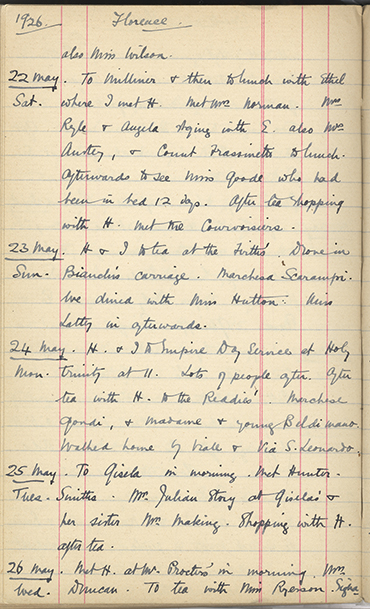 1926. Florence.
also Miss Wilson.
22 May. To Milliner & then to lunch with Ethel
Sat. where I met H. Met Mrs Norman. Mrs
Ryle & Angela staying with E. also Mrs
Anstey, & Count Frassinetto to lunch.
Afterwards to see Miss Goode who had
been in bed 12 days. After tea shopping
with H. Met the Courvoisiers.
23 May. H & I to tea at the Firths'. Drove in
Sun. Bianchi's carriage. Marchesa Scarampi.
We dined with Miss Hutton. Miss
Latty in afterwards.
24 May. H. & I to Empire Day Service at Holy
Mon. trinity at 11. Lots of people after. After
tea with H. to the Readies'. Marchese
Gondi, & Madame & young Beldimano.
Walked home by Viale & Via S. Leonardo.
25 May. To Gisela in morning. Met Hunter-
Tues. Smiths. Mrs Julian Story at Gisela's &
her sister Mrs Making. Shopping with H.
after tea.
26 May. Met H. at Mr Procter's in morning. Mrs
Wed. Duncan. To tea with Miss Ryerson.